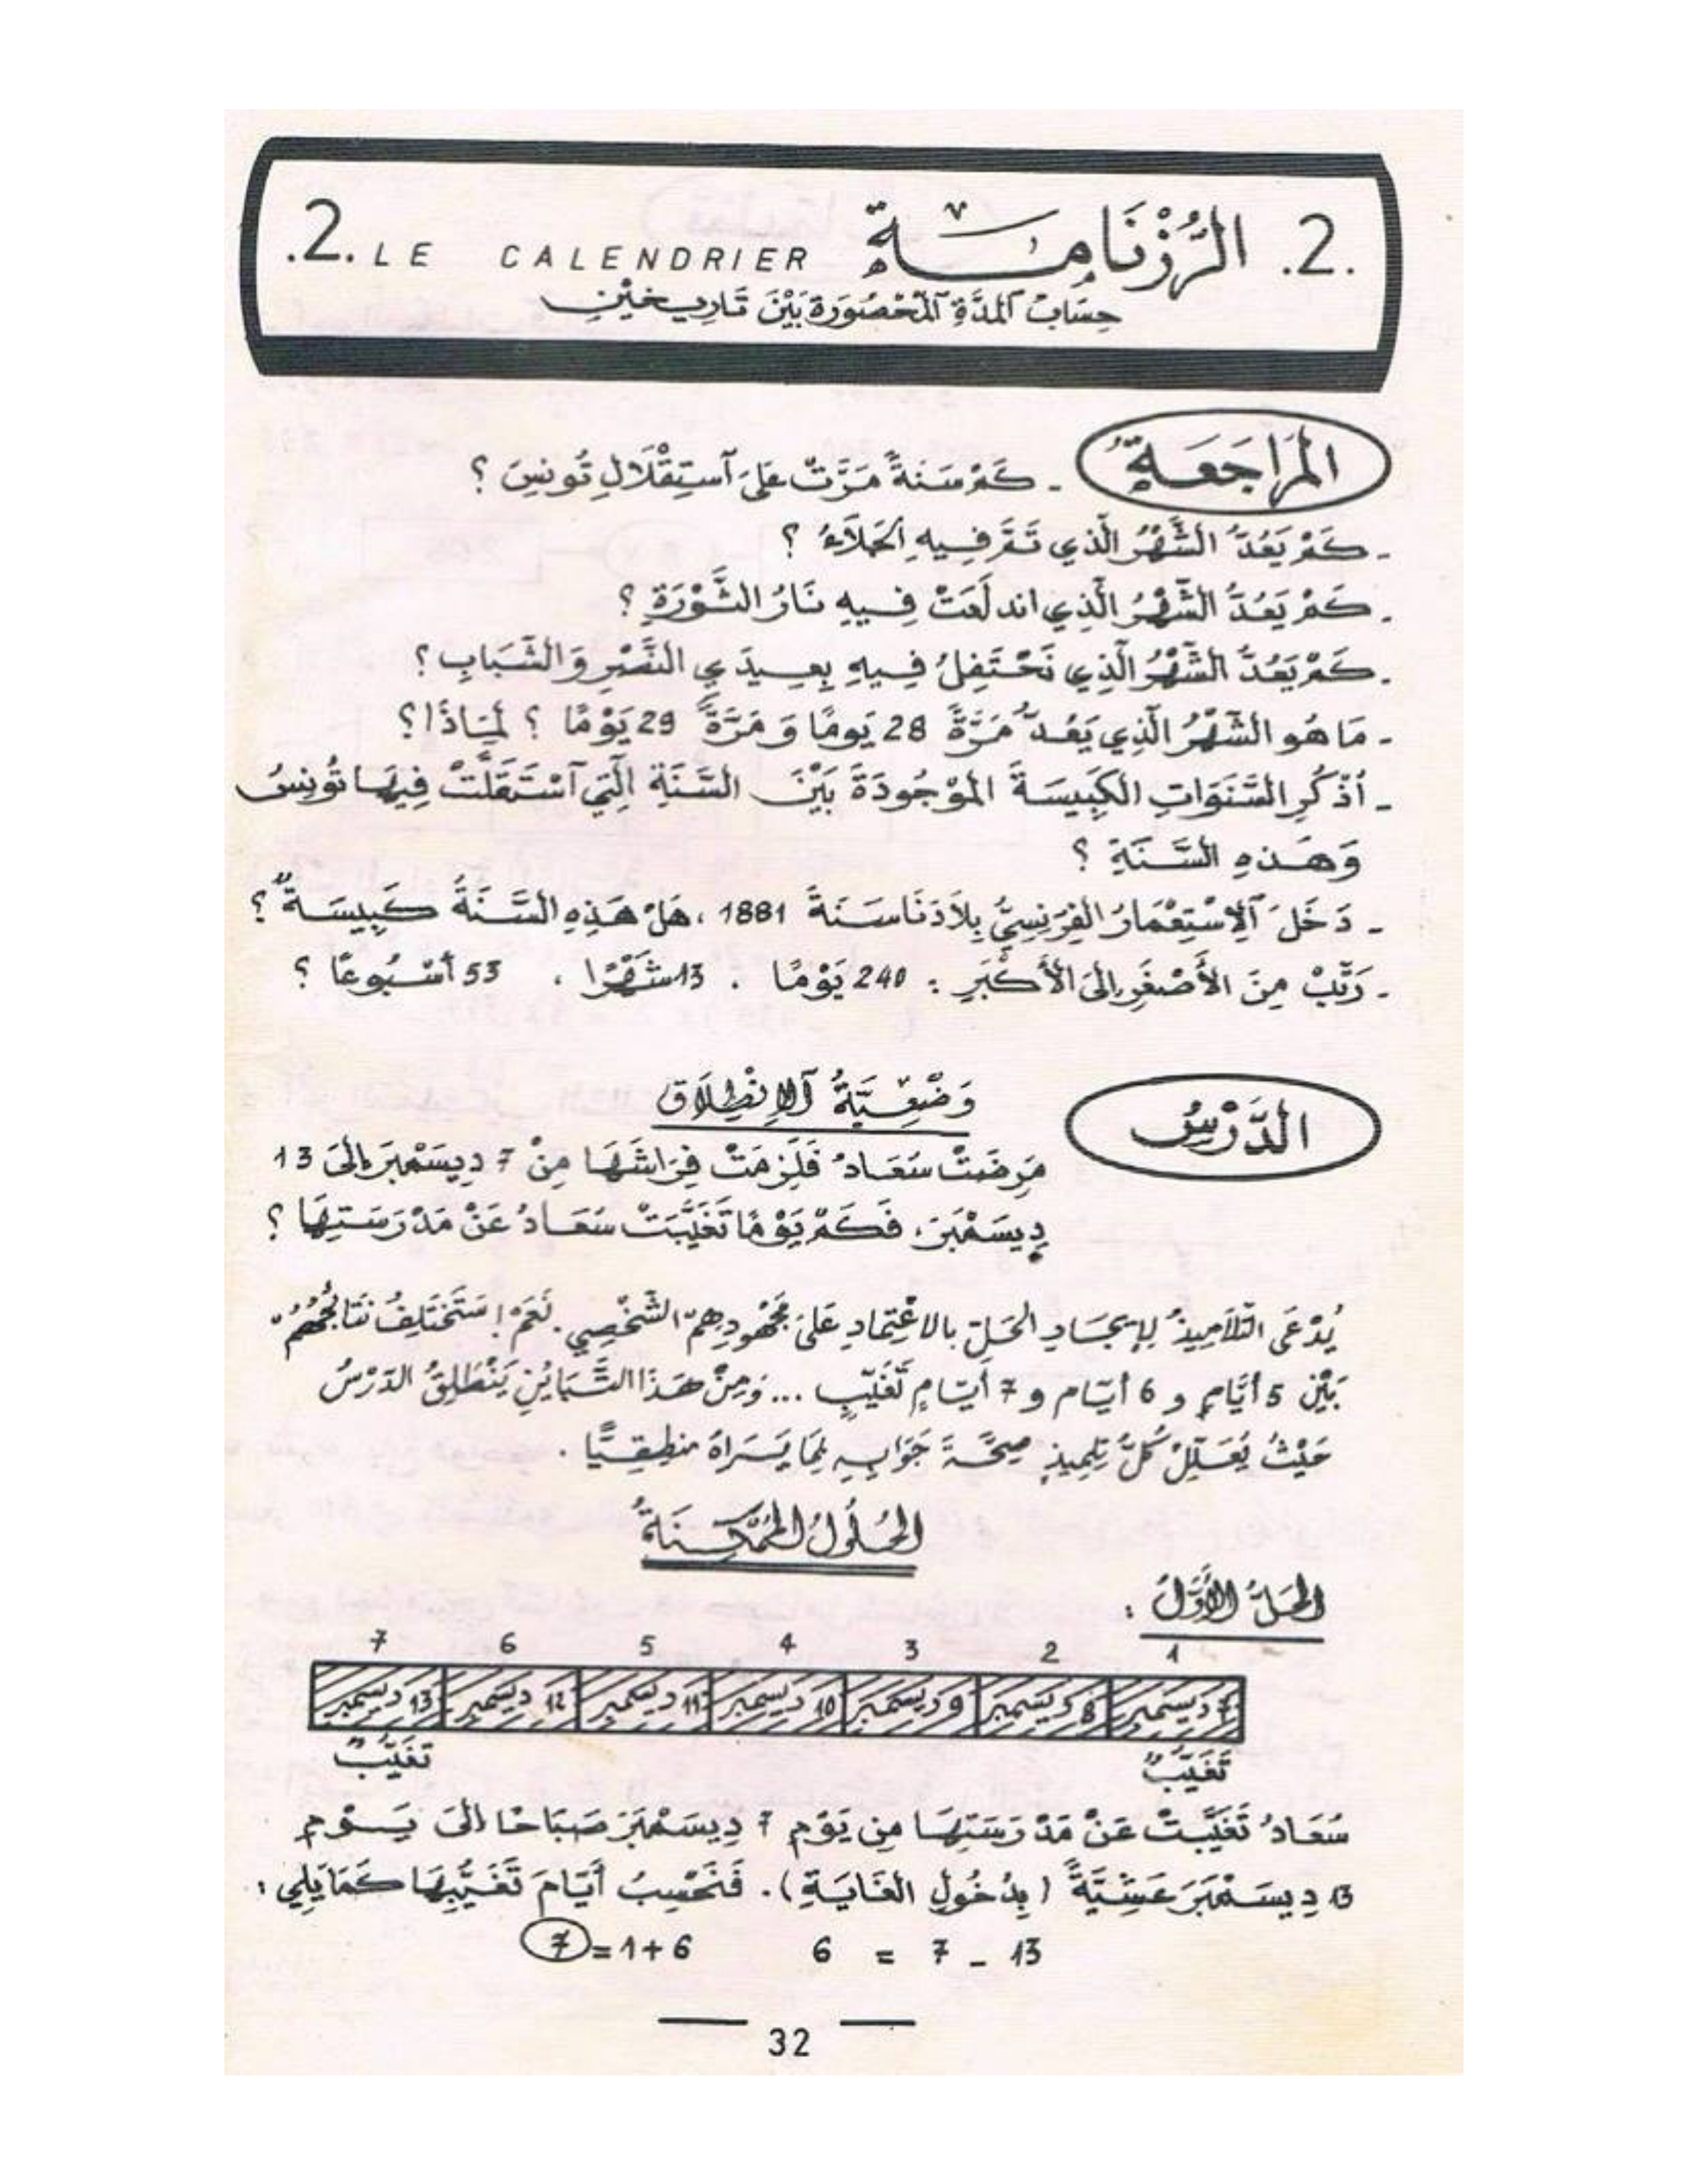 .2. الرُّزْنَامَةُ .2. LE CALENDRIER
حِسَابُ ٱلْمُدَّةِ ٱلْمَحْصُورَةِ بَيْنَ تَارِيخَيْنِ
المُرَاجَعَةُ - كَمْ سَنَةً مَرَّتْ عَلَى ٱسْتِقْلَالِ تُونِسَ ؟
- كَمْ يَعُدُّ الشَّهْرُ الَّذِي تَمَّ فِيهِ الجَلَاءُ ؟
- كَمْ يَعُدُّ الشَّهْرُ الَّذِي اندلَعَتْ فِيهِ نَارُ الثَّوْرَةِ ؟
- كَمْ يَعُدُّ الشَّهْرُ الَّذِي نَحْتَفِلُ فِيهِ بِعِيدَيِ النَّصْرِ وَالشَّبَابِ ؟
- مَا هُو الشَّهْرُ الَّذِي يَعُدُّ مَرَّةً 28 يَومًا وَ مَرَّةً 29 يَوْمًا ؟ لِمَاذَا ؟
- أُذْكُرِ السَّنَوَاتِ الكَبِيسَةَ المَوْجُودَةَ بَيْنَ السَّنَةِ الَّتِي ٱسْتَقَلَّتْ فِيهَا تُونِسُ
وَهَذِهِ السَّنَةِ ؟
- دَخَلَ ٱلِاسْتِعْمَارُ الفِرَنْسِيُّ بِلَادَنَا سَنَةَ 1881 ، هَلْ هَذِهِ السَّنَةُ كَبِيسَةٌ ؟
- رَتِّبْ مِنَ الأَصْغَرِ إِلَى الأَكْبَرِ : 240 يَوْمًا . 13 شَهْرًا . 53 أُسْبُوعًا ؟
الدَّرْسُ
وَضْعِيَّةُ ٱلاِنْطِلَاقِ
مَرِضَتْ سُعَادُ فَلَزِمَتْ فِرَاشَهَا مِنْ 7 دِيسَمْبِرَ إِلَى 13
دِيسَمْبِرَ، فَكَمْ يَوْمًا تَغَيَّبَتْ سُعَادُ عَنْ مَدْرَسَتِهَا ؟
يُدْعَى التَّلَامِيذُ لِإِيجَادِ الحَلِّ بالاعْتِمَادِ عَلَى مَجْهُودِهِمْ الشَّخْصِي. نَعَمْ! سَتَخْتَلِفُ نَتَائِجُهُمْ
بَيْنَ 5 أَيَّامٍ و 6 أيّام و 7 أيّامٍ تَغَيُّبٍ ... وَمِنْ هَذَا التَّبَايُنِ يَنْطَلِقُ الدَّرْسُ
حَيْثُ يُعَلِّلُ كُلُّ تِلمِيذٍ صِحَّةَ جَوَابِهِ بِمَا يَرَاهُ منطِقِيًّا .
الحُلُولُ المُمْكِنَةُ
الحَلُّ الأَوَّلُ :
1 2 3 4 5 6 7
7 ديسمبر 8 ديسمبر 9 ديسمبر 10 ديسمبر 11 ديسمبر 12 ديسمبر 13 ديسمبر
تَغَيُّبٌ تَغَيُّبٌ
سُعَادُ تَغَيَّبَتْ عَنْ مَدْرَسَتِهَا مِن يَوْمِ 7 دِيسَمْبِرَ صَبَاحًا إِلَى يَوْمِ
13 دِيسَمْبِرَ عَشِيَّةً (بِدُخُولِ الغَايَةِ). فَنَحْسِبُ أَيَّامَ تَغَيُّبِهَا كَمَا يَلِي :
13 - 7 = 6 6 + 1 = 7
32